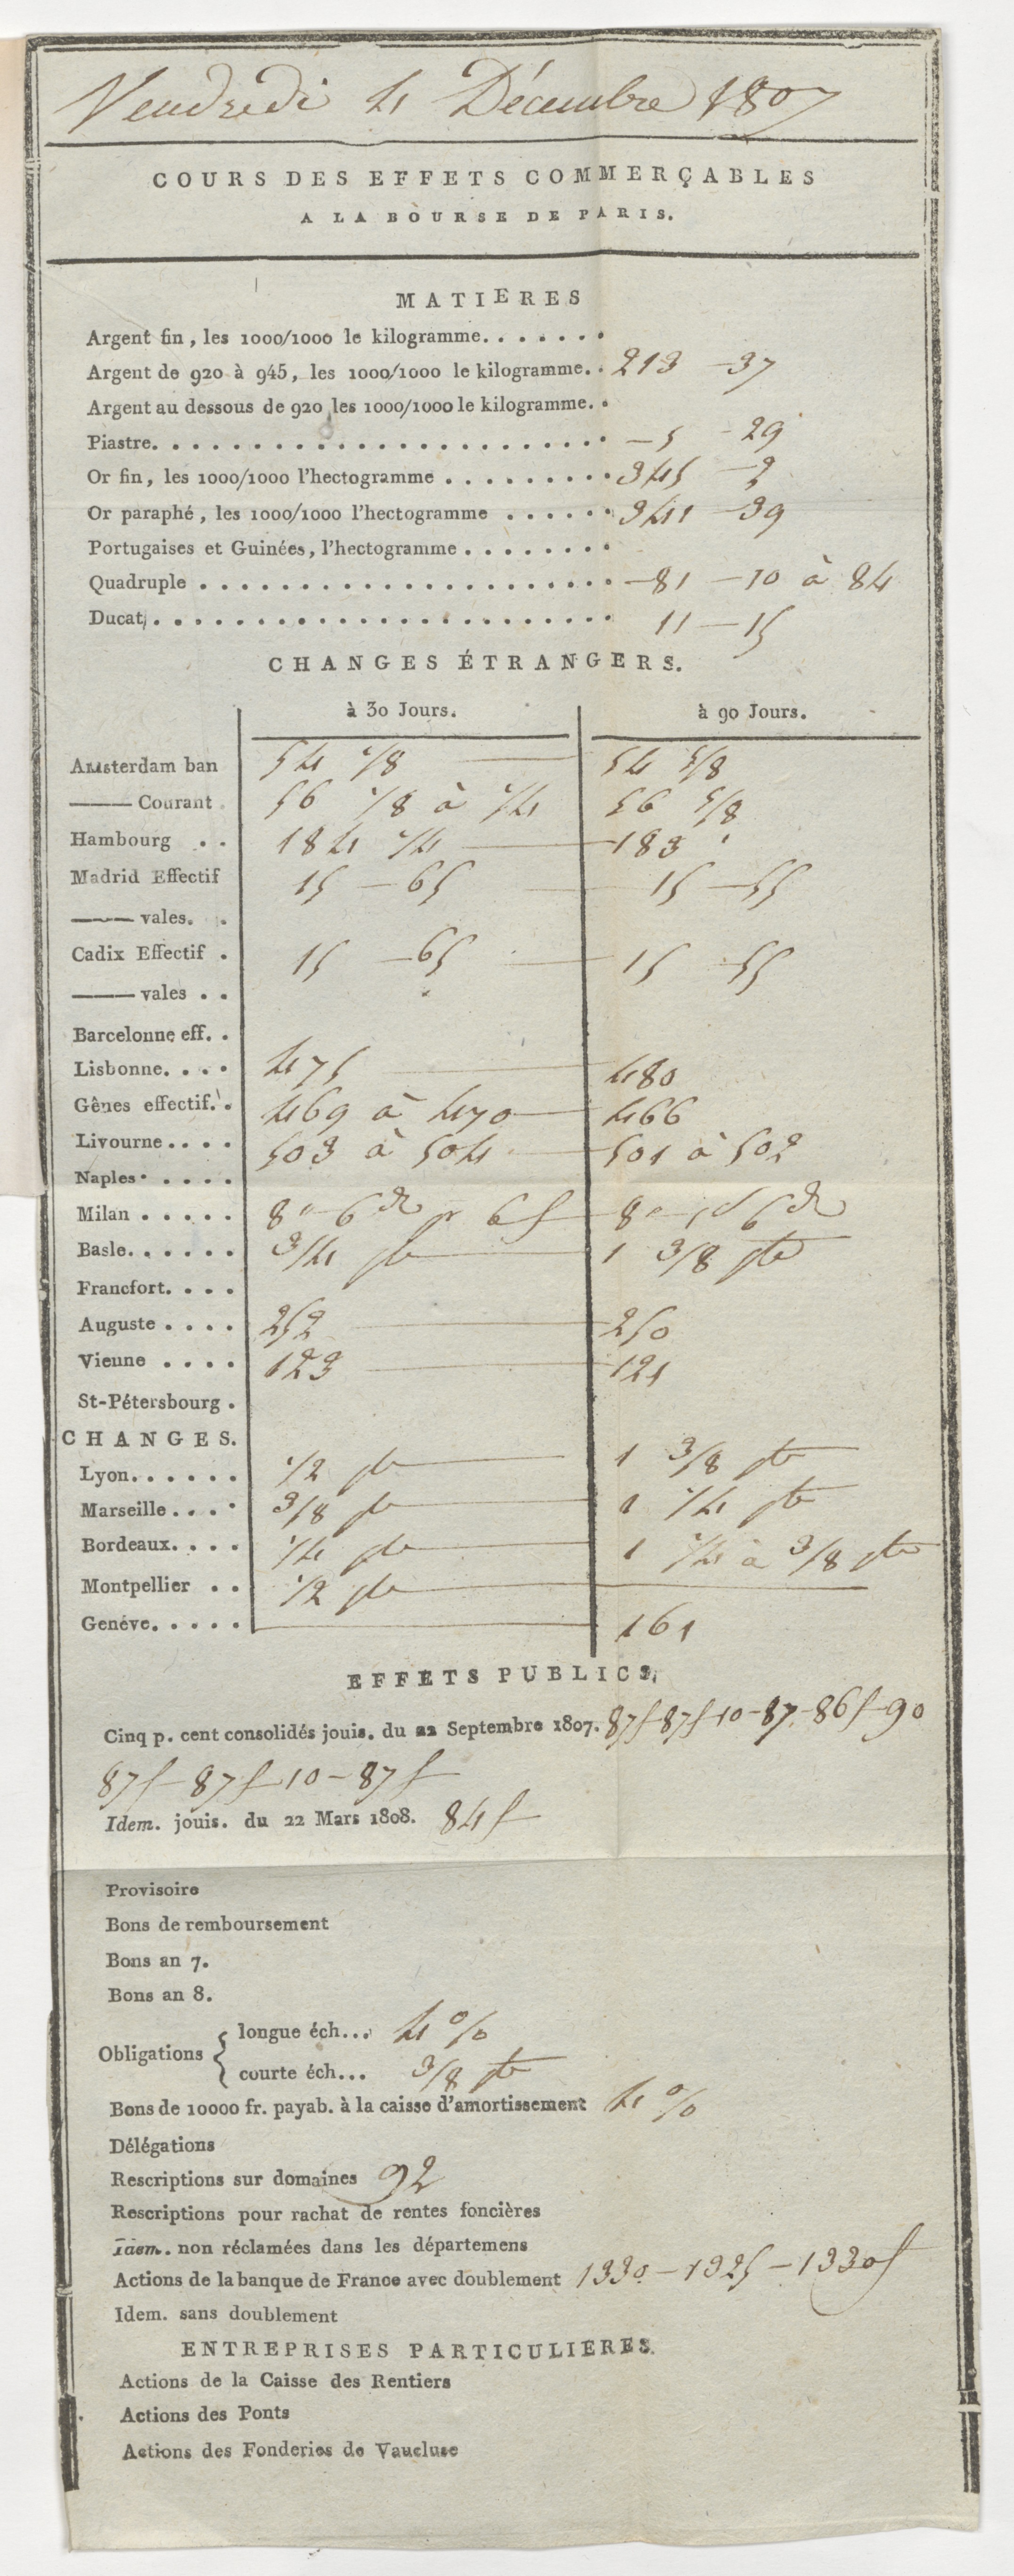 Vendredi 4 Décembre 1807
COURS DES EFFETS COMMERÇABLES
A LA BOURSE DE PARIS.
MATIERES
Argent fin, les 1000/1000 le kilogramme.......
Argent de 920 à 945, les 1000/1000 le kilogramme.. 213 - 37
Argent au dessous de 920 les 1000/1000 le kilogramme..
Piastre...................... - 5 - 29
Or fin, les 1000/1000 l'hectogramme ......... 345 - 2
Or paraphé, les 1000/1000 l'hectogramme ...... 341 - 39
Portugaises et Guinées, l'hectogramme ........
Quadruple ..................... - 81 - 10 à 84
Ducat....................... 11 - 15
CHANGES ÉTRANGERS.
à 30 Jours. à 90 Jours.
Amsterdam ban 54 1/8 — 54 5/8
—— Courant. 56 1/8 à 1/4 56 5/8
Hambourg .. 184 1/4 — 183
Madrid Effectif 15 - 65 — 15 - 55
—— vales. .
Cadix Effectif . 15 - 65 — 15 - 55
—— vales ..
Barcelonne eff. .
Lisbonne.... 475 — 480
Gênes effectif.. 469 à 470 — 466
Livourne.... 503 à 504 — 501 à 502
Naples.....
Milan ..... 8 6 pr 6f — 8 6
Basle...... 3/4 pte — 1 3/8 pte
Francfort....
Auguste .... 252 — 250
Vienne .... 123 — 121
St-Pétersbourg .
CHANGES.
Lyon...... 1/2 pte — 1 3/8 pte
Marseille.... 3/8 pte — 1 1/4 pte
Bordeaux.... 1/4 pte — 1 1/4 à 3/8 pte
Montpellier .. 1/2 pte —
Genéve..... — 161
EFFETS PUBLICS,
Cinq p. cent consolidés jouis. du 22 Septembre 1807. 87f - 87f 10 - 87. - 86f - 90
87f - 87f 10 - 87f
Idem. jouis. du 22 Mars 1808. 84f
Provisoire
Bons de remboursement
Bons an 7.
Bons an 8.
Obligations { longue éch... 4 %
courte éch... 3/8 pte
Bons de 10000 fr. payab. à la caisse d'amortissement 4 %
Délégations
Rescriptions sur domaines 92
Rescriptions pour rachat de rentes foncières
Idem. non réclamées dans les départemens
Actions de la banque de France avec doublement 1330 - 1325 - 1330f
Idem. sans doublement
ENTREPRISES PARTICULIERES.
Actions de la Caisse des Rentiers
Actions des Ponts
Actions des Fonderies de Vaucluse